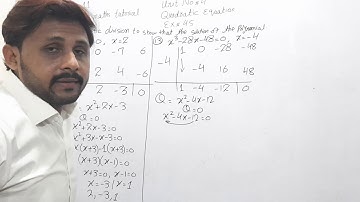 Unit No # 4
Quadratic Equation
Ex # 4.5
division to show that the solution of the Polynomial
=0, x=2
x³-28x-48=0, x=-4
0 -7 6
-4 1 0 -28 -48
2 4 -6
↓ -4 16 48
2 -3 0
1 -4 -12 0
x²+2x-3
Q=0
x²+2x-3=0
x²+3x-x-3=0
x(x+3)-1(x+3)=0
(x+3)(x-1)=0
x+3=0, x-1=0
x=-3 / x=1
2, -3, 1
Q = x²-4x-12
Q=0
x²-4x-12=0